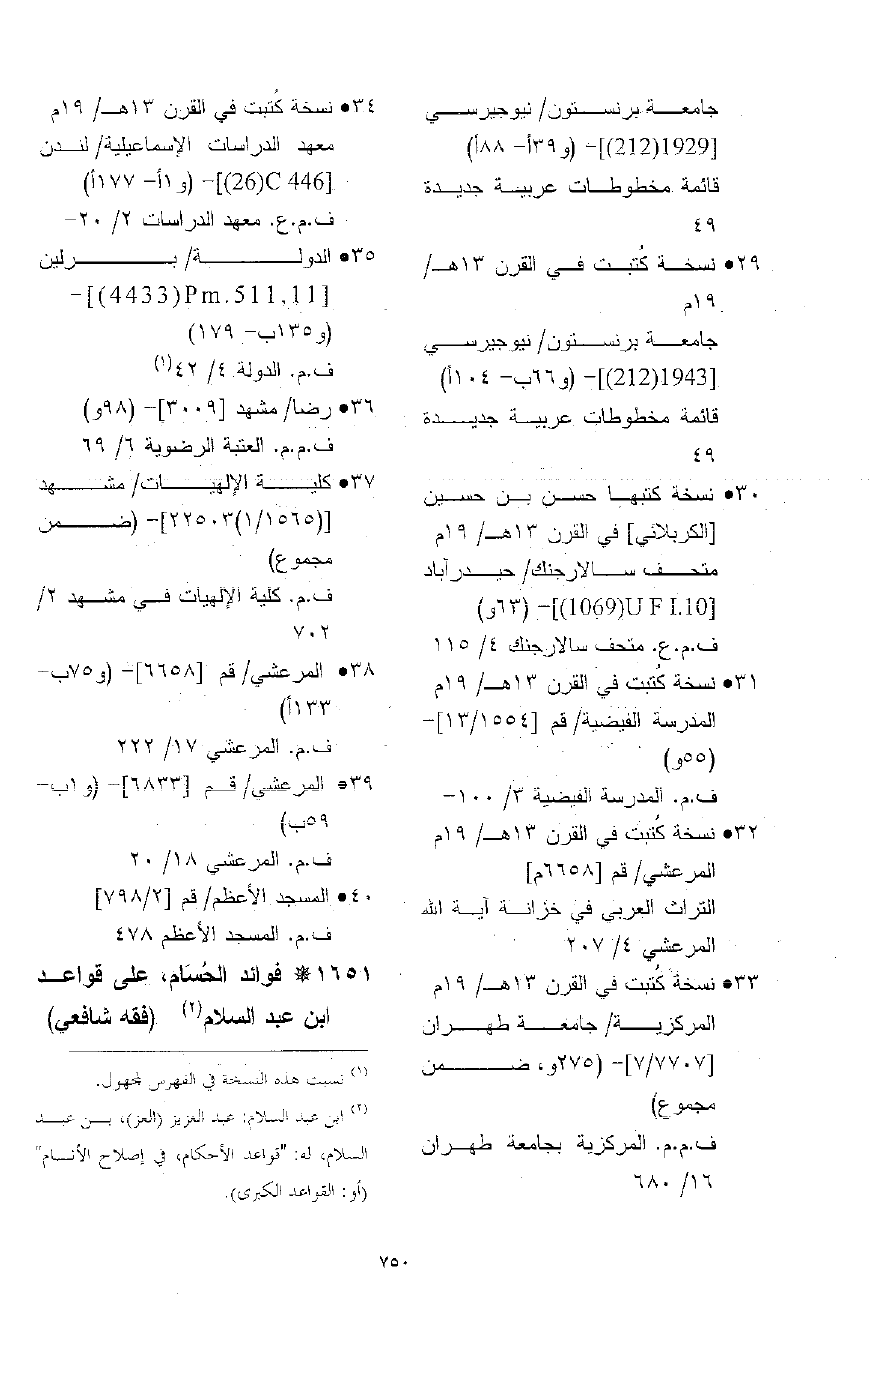 جامعة برنستون/ نيوجيرسي
[1929(212)]- (و٣٩أ- ٨٨أ)
قائمة مخطوطات عربية جديدة
٤٩
٢٩• نسخة كُتبت في القرن ١٣هـ/
١٩م
جامعة برنستون/ نيوجيرسي
[1943(212)]- (و٦٦ب- ١٠٤أ)
قائمة مخطوطات عربية جديدة
٤٩
٣٠• نسخة كتبها حسن بن حسين
[الكربلائي] في القرن ١٣هـ/ ١٩م
متحف سالارجنك/ حيدرآباد
[U F I.10(1069)]- (٦٣و)
ف.م.ع. متحف سالارجنك ٤/ ١١٥
٣١• نسخة كُتبت في القرن ١٣هـ/ ١٩م
المدرسة الفيضية/ قم [١٣/١٥٥٤]-
(٥٥و)
ف.م. المدرسة الفيضية ٣/ ١٠٠-
٣٢• نسخة كُتبت في القرن ١٣هـ/ ١٩م
المرعشي/ قم [٦٦٥٨م]
التراث العربي في خزانة آية الله
المرعشي ٤/ ٢٠٧
٣٣• نسخة كُتبت في القرن ١٣هـ/ ١٩م
المركزية/ جامعة طهران
[٧/٧٧٠٧]- (٢٧٥و، ضمن
مجموع)
ف.م.م. المركزية بجامعة طهران
١٦/ ٦٨٠
٣٤• نسخة كُتبت في القرن ١٣هـ/ ١٩م
معهد الدراسات الإسماعيلية/ لندن
[446 C(26)]- (و١أ- ١٧٧أ)
ف.م.ع. معهد الدراسات ٢/ ٢٠-
٣٥• الدولة/ برلين
[Pm.511,11(4433)]-
(و١٣٥ب- ١٧٩)
ف.م. الدولة ٤/ ٤٢(١)
٣٦• رضا/ مشهد [٣٠٠٩]- (٩٨و)
ف.م.م. العتبة الرضوية ٦/ ٦٩
٣٧• كلية الإلهيات/ مشهد
[(١/١٥٦٥)٢٢٥٠٣]- (ضمن
مجموع)
ف.م. كلية الإلهيات في مشهد ٢/
٧٠٢
٣٨• المرعشي/ قم [٦٦٥٨]- (و٧٥ب-
١٣٣أ)
ف.م. المرعشي ١٧/ ٢٢٢
٣٩• المرعشي/ قم [٦٨٣٣]- (و١ب-
٥٩ب)
ف.م. المرعشي ١٨/ ٢٠
٤٠• المسجد الأعظم/ قم [٧٩٨/٢]
ف.م. المسجد الأعظم ٤٧٨
١٦٥١* فوائد الحُسَام، على قواعد
ابن عبد السلام(٢) (فقه شافعي)
(١) نسبت هذه النسخة في الفهرس لمجهول.
(٢) ابن عبد السلام: عبد العزيز (العز)، بن عبد
السلام، له: "قواعد الأحكام، في إصلاح الأنام"
(أو: القواعد الكبرى).
٧٥٠